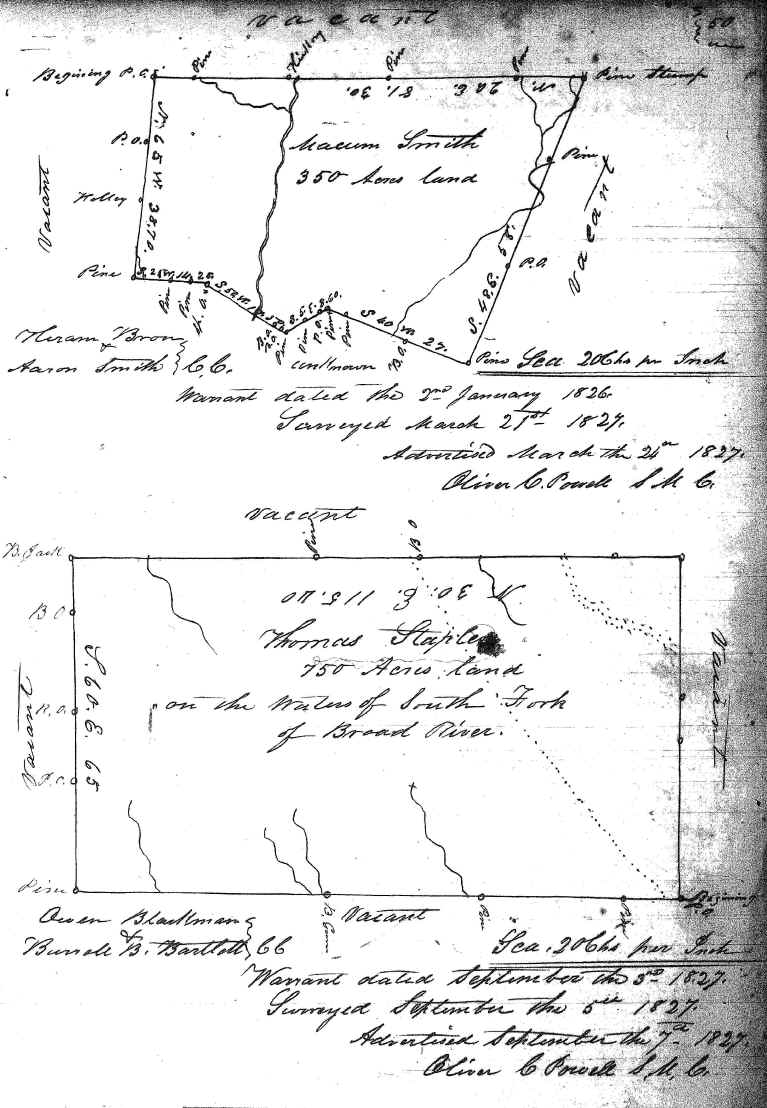 vacant
50
Begining P.O.
Pine
Hickory
Pine
Pine
Pine Stump
N. 26 E. 81.30.
P.O.
Macum Smith
350 Acres land
Pine
N. 65 W. 38.70.
Vacant
Vacant
Pine
P.O.
S. 48 E. 58.
Pine
Pine
Pine
B.O.
Pine
Pine
P.O.
Pine
Pine
S 40 W. 27.
B.O.
Pine
unknown
Hiram Brown
&
Aaron Smith } C.C.
Sca 20 Chs pr Inch
Warrant dated the 2nd January 1826.
Surveyed March 21st 1827.
Advertised March the 24th 1827.
Oliver C. Powell S M C.
Vacant
B. Jack
Pine
B O
B O
N 30. E. 115.70
Thomas Staples
750 Acres land
on the Waters of South Fork
of Broad River.
S. 60 E. 65
Vacant
Vacant
R.O.
P.O.
Pine
B. Gum
Vacant
Pin
Begining
P.O
Owen Blackman
&
Burrell B. Bartlett } CC
Sca. 20 Chs per Inch
Warrant dated September the 3rd 1827.
Surveyed September the 5th 1827.
Advertised September the 7th 1827.
Oliver C Powell S. M. C.